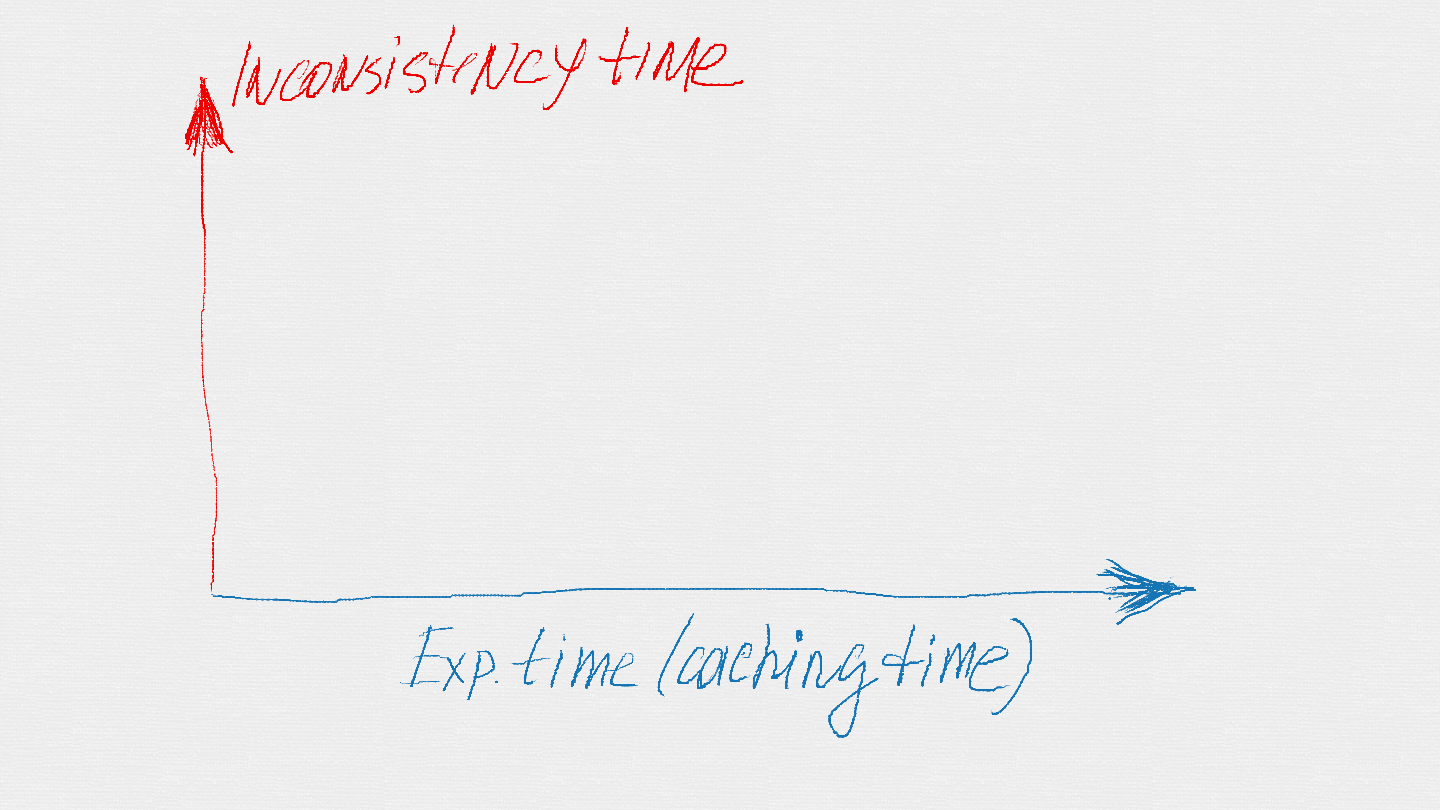 Inconsistency time
Exp. time (caching time)